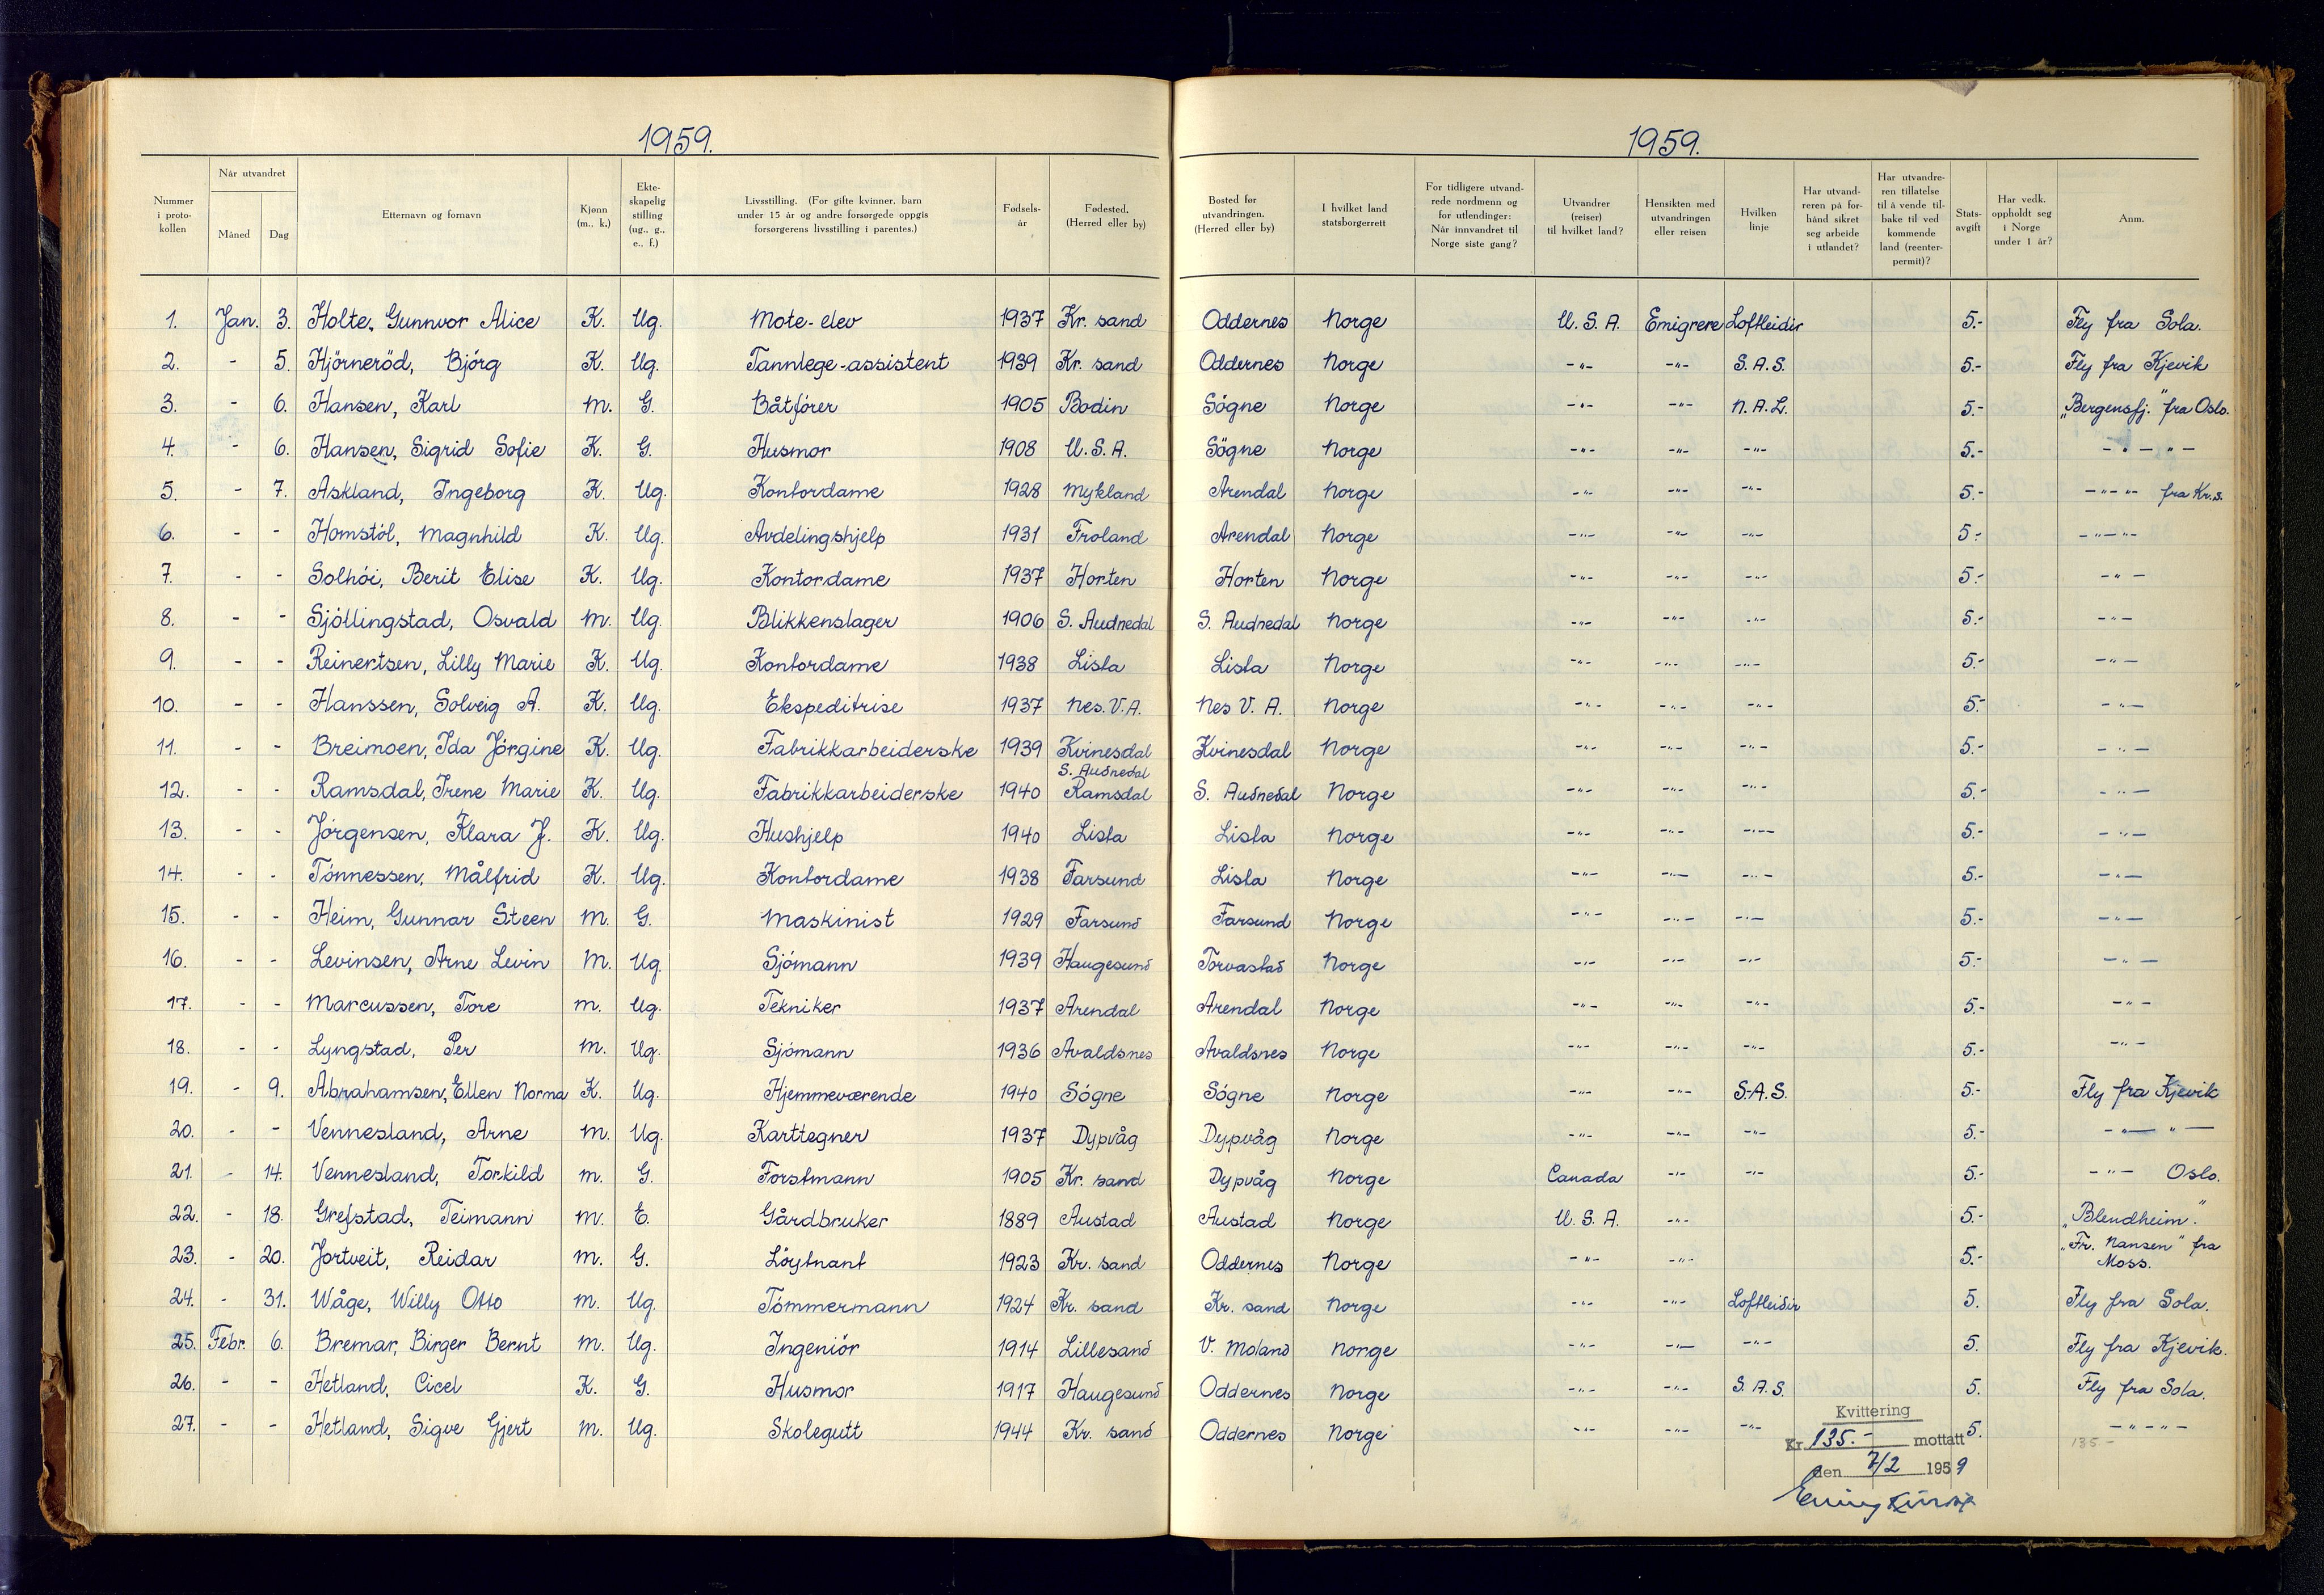 1959.
1959.
Nummer i proto-kollen | Når utvandret Måned Dag | Etternavn og fornavn | Kjønn (m., k.) | Ekte-skapelig stilling (ug., g., e., f.) | Livsstilling. (For gifte kvinner, barn under 15 år og andre forsørgede oppgis forsørgerens livsstilling i parentes.) | Fødsels-år | Fødested. (Herred eller by) | Bosted før utvandringen. (Herred eller by) | I hvilket land statsborgerrett | For tidligere utvand-rede nordmenn og for utlendinger: Når innvandret til Norge siste gang? | Utvandrer (reiser) til hvilket land? | Hensikten med utvandringen eller reisen | Hvilken linje | Har utvand-reren på for-hånd sikret seg arbeide i utlandet? | Har utvandre-ren tillatelse til å vende til-bake til ved kommende land (reenter-permit)? | Stats-avgift | Har vedk. oppholdt seg i Norge under 1 år? | Anm.
1. Jan. 3. Holte, Gunnvor Alice K. Ug. Mote-elev 1937 Kr. sand Oddernes Norge U.S.A. Emigrere Loftleidir 5.- Fly fra Sola.
2. - 5. Hjörneröd, Björg K. Ug. Tannlege-assistent 1939 Kr. sand Oddernes Norge -"- -"- S.A.S. 5.- Fly fra Kjevik
3. - 6. Hansen, Karl M. G. Båtförer 1905 Bodin Sögne Norge -"- -"- N.A.L. 5.- „Bergensfj." fra Oslo.
4. - 6. Hansen, Sigrid Sofie K. G. Husmor 1908 U.S.A. Sögne Norge -"- -"- -"- 5.- -"- "-
5. - 7. Askland, Ingeborg K. Ug. Kontordame 1928 Mykland Arendal Norge -"- -"- -"- 5.- -"-"- fra Kr.s.
6. - - Homstöl, Magnhild K. Ug. Avdelingshjelp 1931 Froland Arendal Norge -"- -"- -"- 5.- -"-"-
7. - - Solhöi, Berit Elise K. Ug. Kontordame 1937 Horten Horten Norge -"- -"- -"- 5.- -"-
8. - - Sjöllingstad, Osvald M. Ug. Blikkenslager 1906 S. Audnedal S. Audnedal Norge -"- -"- -"- 5.- -"-
9. - - Reinertsen, Lilly Marie K. Ug. Kontordame 1938 Lista Lista Norge -"- -"- -"- 5.- -"-
10. - - Hanssen, Solveig A. K. Ug. Ekspeditrise 1937 Nes.V.A. Nes V. A. Norge -"- -"- -"- 5.- -"-
11. - - Breimoen, Ida Jörgine K. Ug. Fabrikkarbeiderske 1939 Kvinesdal Kvinesdal Norge -"- -"- -"- 5.- -"-
12. - - Ramsdal, Irene Marie K. Ug. Fabrikkarbeiderske 1940 S. Audnedal Ramsdal S. Audnedal Norge -"- -"- -"- 5.- -"-
13. - - Jörgensen, Klara J. K. Ug. Hushjelp 1940 Lista Lista Norge -"- -"- -"- 5.- -"-
14. - - Tönnessen, Målfrid K. Ug. Kontordame 1938 Farsund Lista Norge -"- -"- -"- 5.- -"-
15. - - Heim, Gunnar Steen M. G. Maskinist 1929 Farsund Farsund Norge -"- -"- -"- 5.- -"-
16. - - Levinsen, Arne Levin M. Ug. Sjömann 1939 Haugesund Torvastad Norge -"- -"- -"- 5.- -"-
17. - - Marcussen, Tore M. Ug. Tekniker 1937 Arendal Arendal Norge -"- -"- -"- 5.- -"-
18. - - Lyngstad, Per M. Ug. Sjömann 1936 Avaldsnes Avaldsnes Norge -"- -"- -"- 5.- -"-
19. - 9. Abrahamsen, Ellen Norma K. Ug. Hjemmeværende 1940 Sögne Sögne Norge -"- -"- S.A.S. 5.- Fly fra Kjevik
20. - - Vennesland, Arne M. Ug. Karttegner 1937 Dypvåg Dypvåg Norge -"- -"- -"- 5.- -"- "-
21. - 14. Vennesland, Torkild M. G. Forstmann 1905 Kr. sand Dypvåg Norge Canada -"- -"- 5.- -"- Oslo.
22. - 18. Grefstad, Teimann M. E. Gårdbruker 1889 Austad Austad Norge U.S.A. -"- 5.- „Blendheim."
23. - 20. Jortveit, Reidar M. G. Löytnant 1923 Kr. sand Oddernes Norge -"- -"- 5.- „Fr. Nansen" fra Moss.
24. - 31. Wåge, Willy Otto M. Ug. Tömmermann 1924 Kr. sand Kr. sand Norge -"- -"- Loftleidir 5. Fly fra Sola.
25. Febr. 6. Bremar, Birger Bernt M. Ug. Ingeniör 1914 Lillesand V. Moland Norge -"- -"- -"- 5. Fly fra Kjevik.
26. - - Hetland, Cicel K. G. Husmor 1917 Haugesund Oddernes Norge -"- -"- S.A.S. 5. Fly fra Sola.
27. - - Hetland, Sigve Gjert M. Ug. Skolegutt 1944 Kr. sand Oddernes Norge -"- -"- -"- 5. -"-"-
Kvittering
Kr. 135.- mottatt 135-
den 7/2 1959